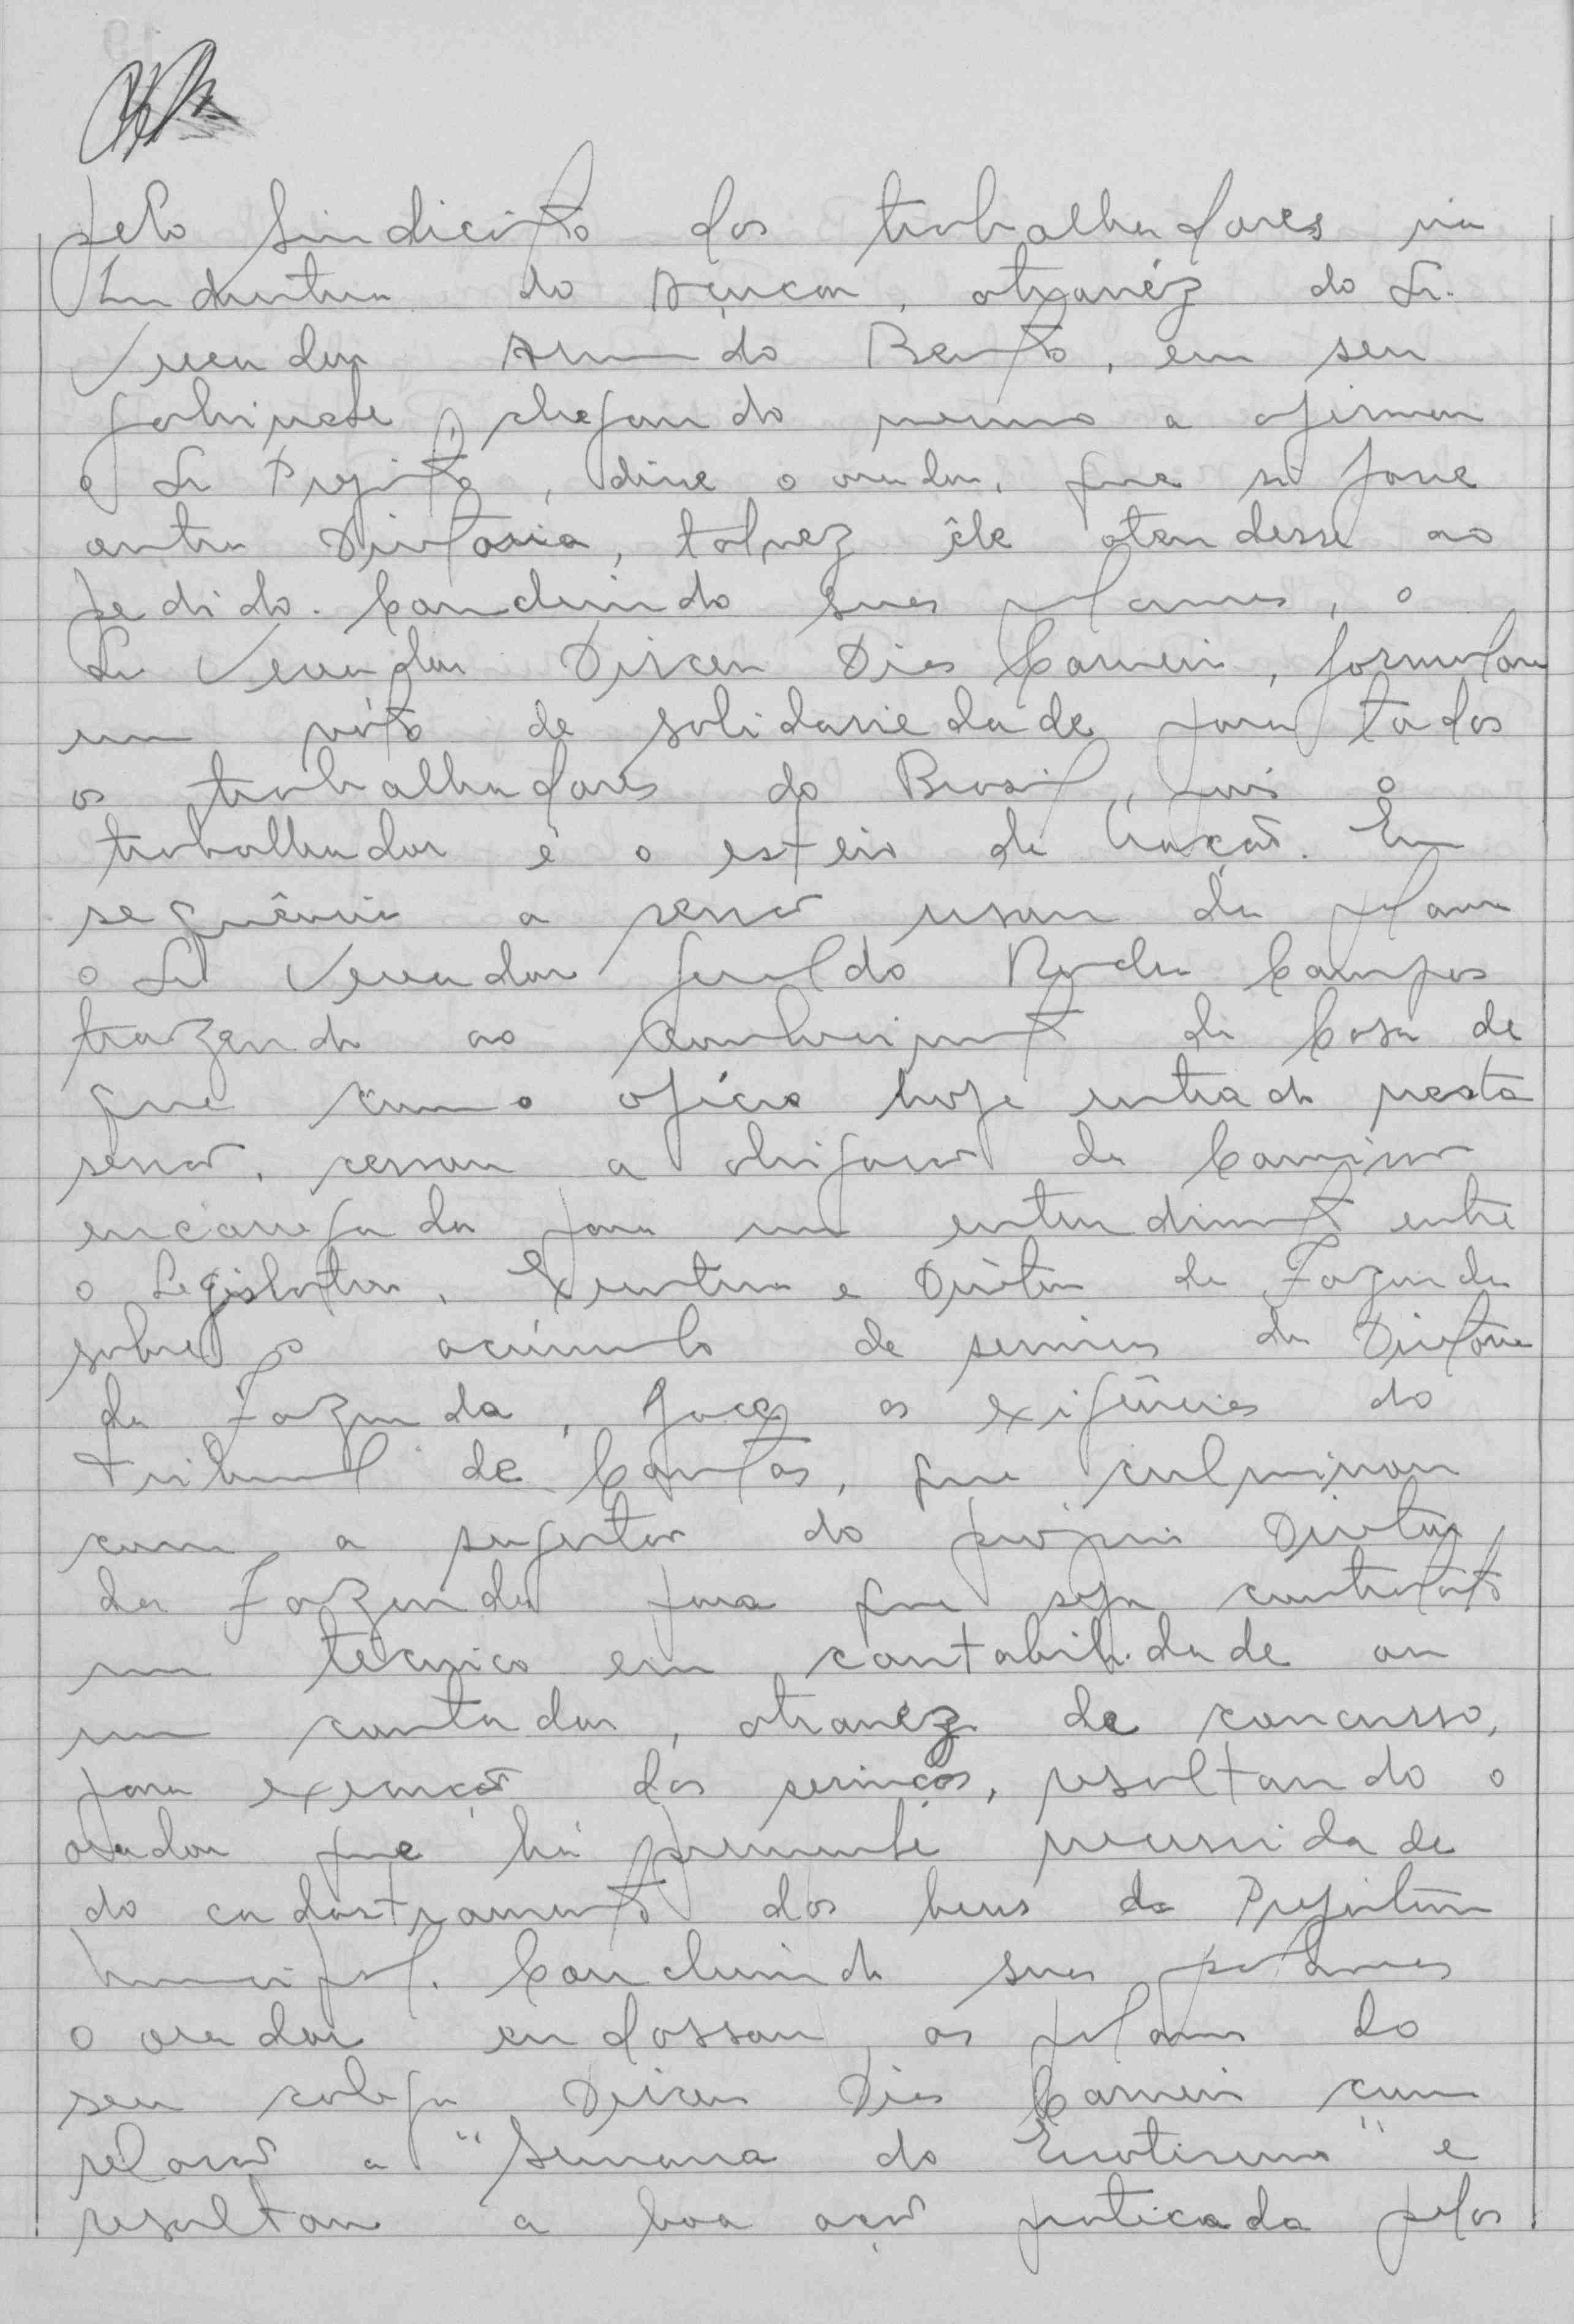 pelo Sindicato dos trabalhadores na
Industria do Açucar, atravéz do Sr.
Vereador Armando Bento, em seu
gabinete, chegando mesmo a afirmar
o Sr Prefeito, disse o orador, que si fosse
outra Diretoria, talvez êle atendesse ao
pedido. Concluindo suas palavras, o
Sr Vereador Dirceu Dias Carneiro, formulou
um vóto de solidariedade para todos
os trabalhadores do Brasil, pois o
trabalhador é o esteio da Nação. Em
sequência a sessão usou da palavra
o Sr Vereador Geraldo Rocha Campos
trazendo ao conhecimento da Casa de
que com o ofício hoje entrado nesta
sessão, cessou a obrigação da Comissão
encarregada para um entendimento entre
o Legislativo, Executivo e Diretor da Fazenda
sobre o acúmulo de serviços da Diretoria
da Fazenda, face as exigências do
Tribunal de Contas, que culminou
com a sugestão do próprio Diretor
da Fazenda para que seja contratado
um técnico em contabilidade ou
um contador, atravéz de concurso,
para execução dos serviços, resaltando o
orador que há premente necessidade
do cadastramento dos bens da Prefeitura
Municipal. Concluindo suas palavras
o orador endossou as palavras do
seu colega Dirceu Dias Carneiro com
relação a "Semana do Excotismo" e
resaltou a boa ação praticada pelos